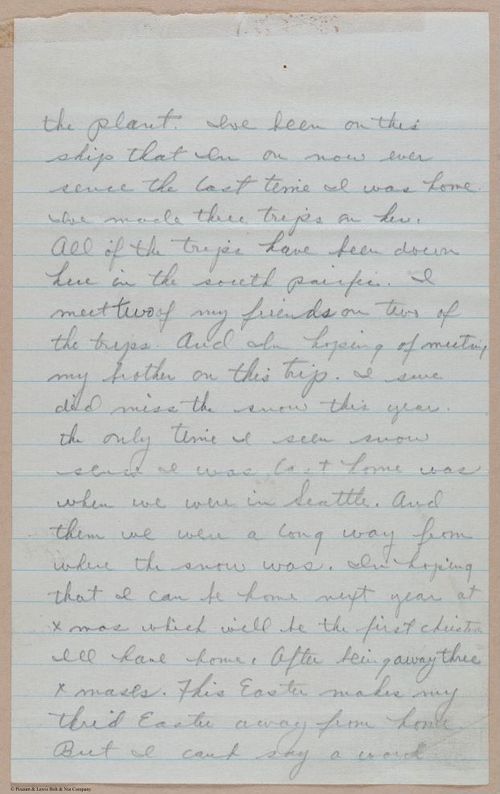 the plant. Ive been on this
ship that Im on now ever
sence the last time I was home.
Ive made three trips on her.
All of the trips have been down
here in the south pacific. I
meet two of my friends on two of
the trips. And Im hoping of meeting
my brother on this trip. I sure
did miss the snow this year.
the only time I seen snow
sence I was last home was
when we were in Seattle. And
them we were a long way from
where the snow was. Im hoping
that I can be home next year at
x mas which will be the first
Ill have home. After being away three
x mases. This Easter makes my
third Easter away from home
But I cant say a word
© Pheoll & Lewis Bolt & Nut Company